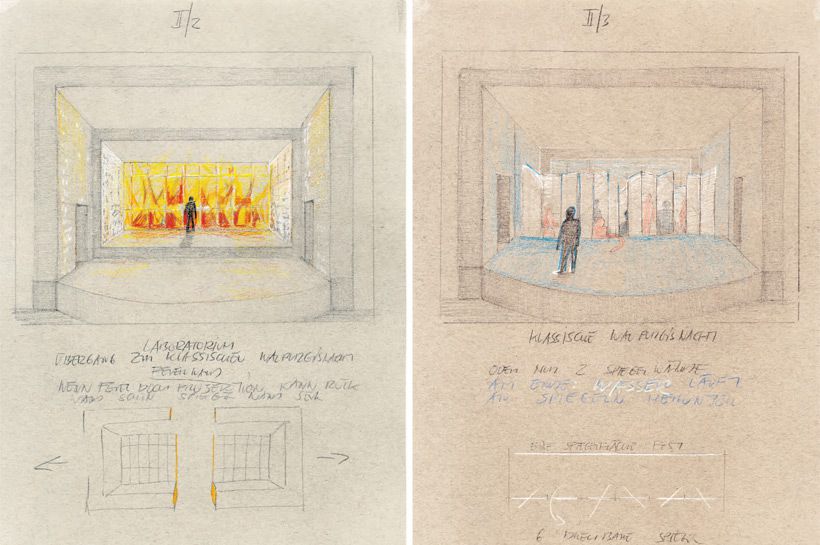 II/2
LABORATORIUM
ÜBERGANG ZUR KLASSISCHEN WALPURGISNACHT
FEUERWAND
WENN FEUER DURCH PROJEKTION, KANN RÜCK
WAND SCHON SPIEGELWAND SEIN
II/3
KLASSISCHE WALPURGISNACHT
ODER NUR 2 SPIEGELWÄNDE
AM ENDE: WASSER LÄUFT
AN SPIEGELN HERUNTER
EINE SPIEGELFLÄCHE FEST
6 DREHBARE SPIEGEL